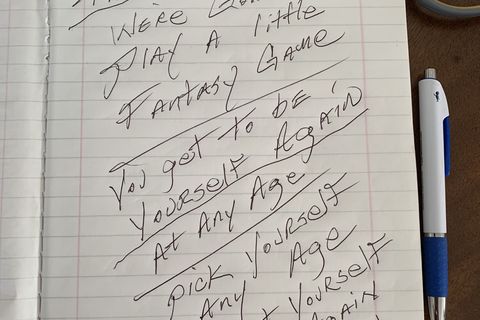 WERE
PlAy A little
FANTASY GAME
You get to be
YOURSELF AgAiN
At Any Age
PICK YOURSElF
Any Age
YOURSElF